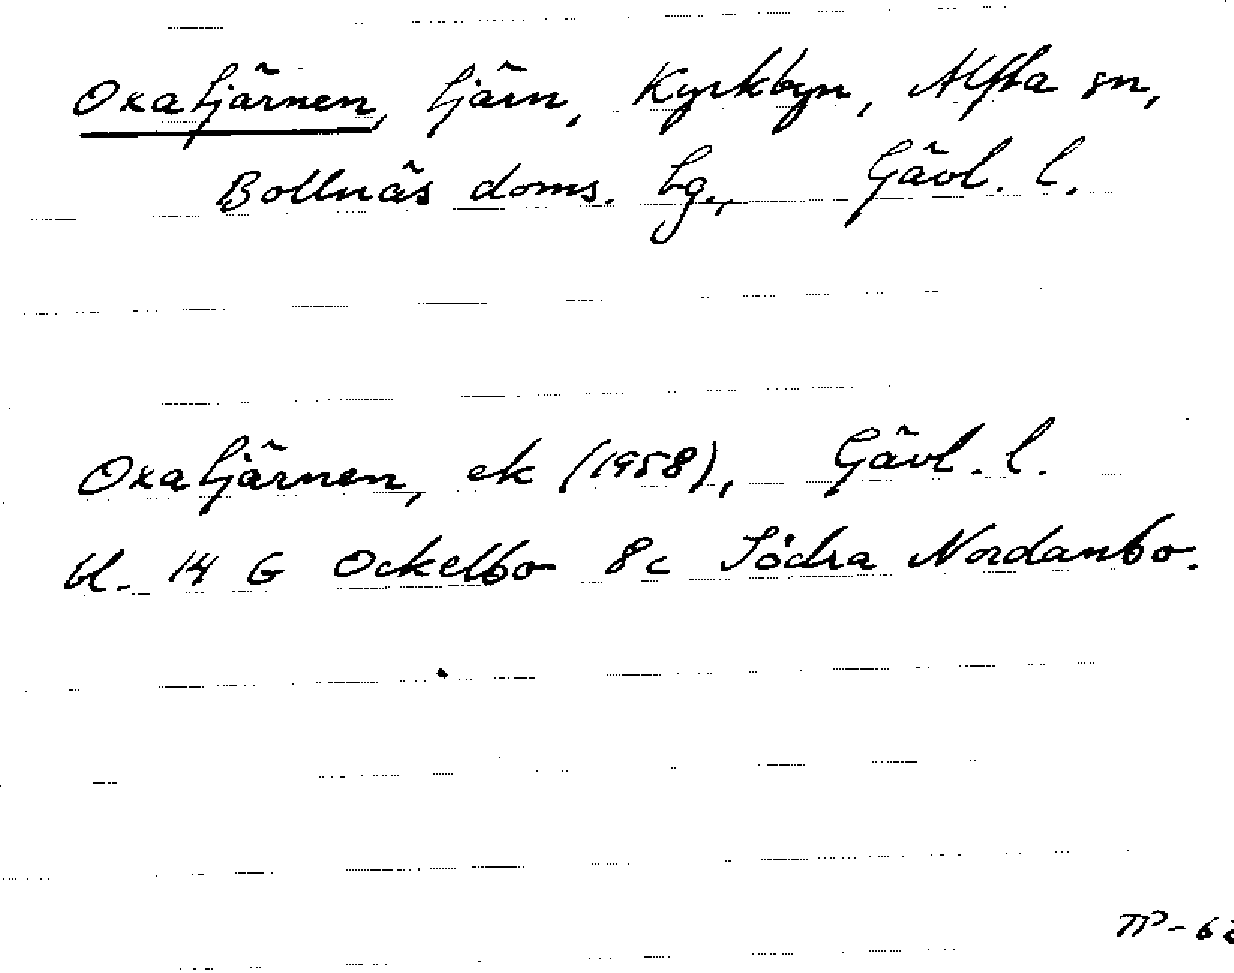 Oxatjärnen, tjärn, Kyrkbyn, Alfta sn,
Bollnäs doms. tg., Gävl. l.
Oxatjärnen, ek (1958), Gävl. l.
bl. 14 G Ockelbo 8c Södra Nordanbo.
TP-62